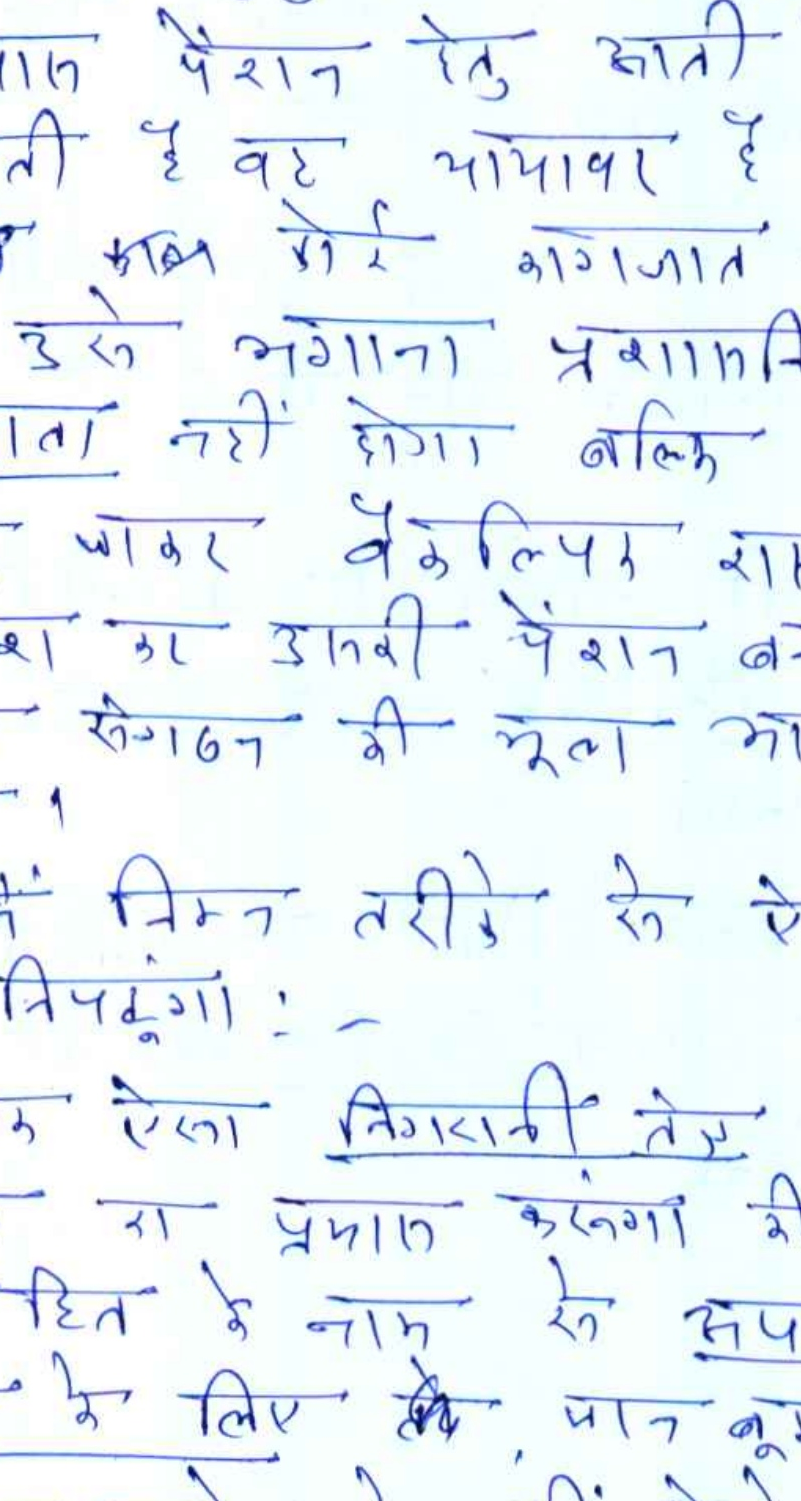 पास पेंशन हेतु आती
ती है वह यायावर है
कोई कागजात
उसे भगाना प्रशासनि
ता नहीं होगा बल्कि
जाकर वैकल्पिक रा
श कर उसकी पेंशन ब
संगठन की मूल भा
।
में निम्न तरीके से ऐ
निपटूंगा :-
क ऐसा निगरानी तंत्र
का प्रयास करूंगा की
हित के नाम से अप
के लिए जान बू